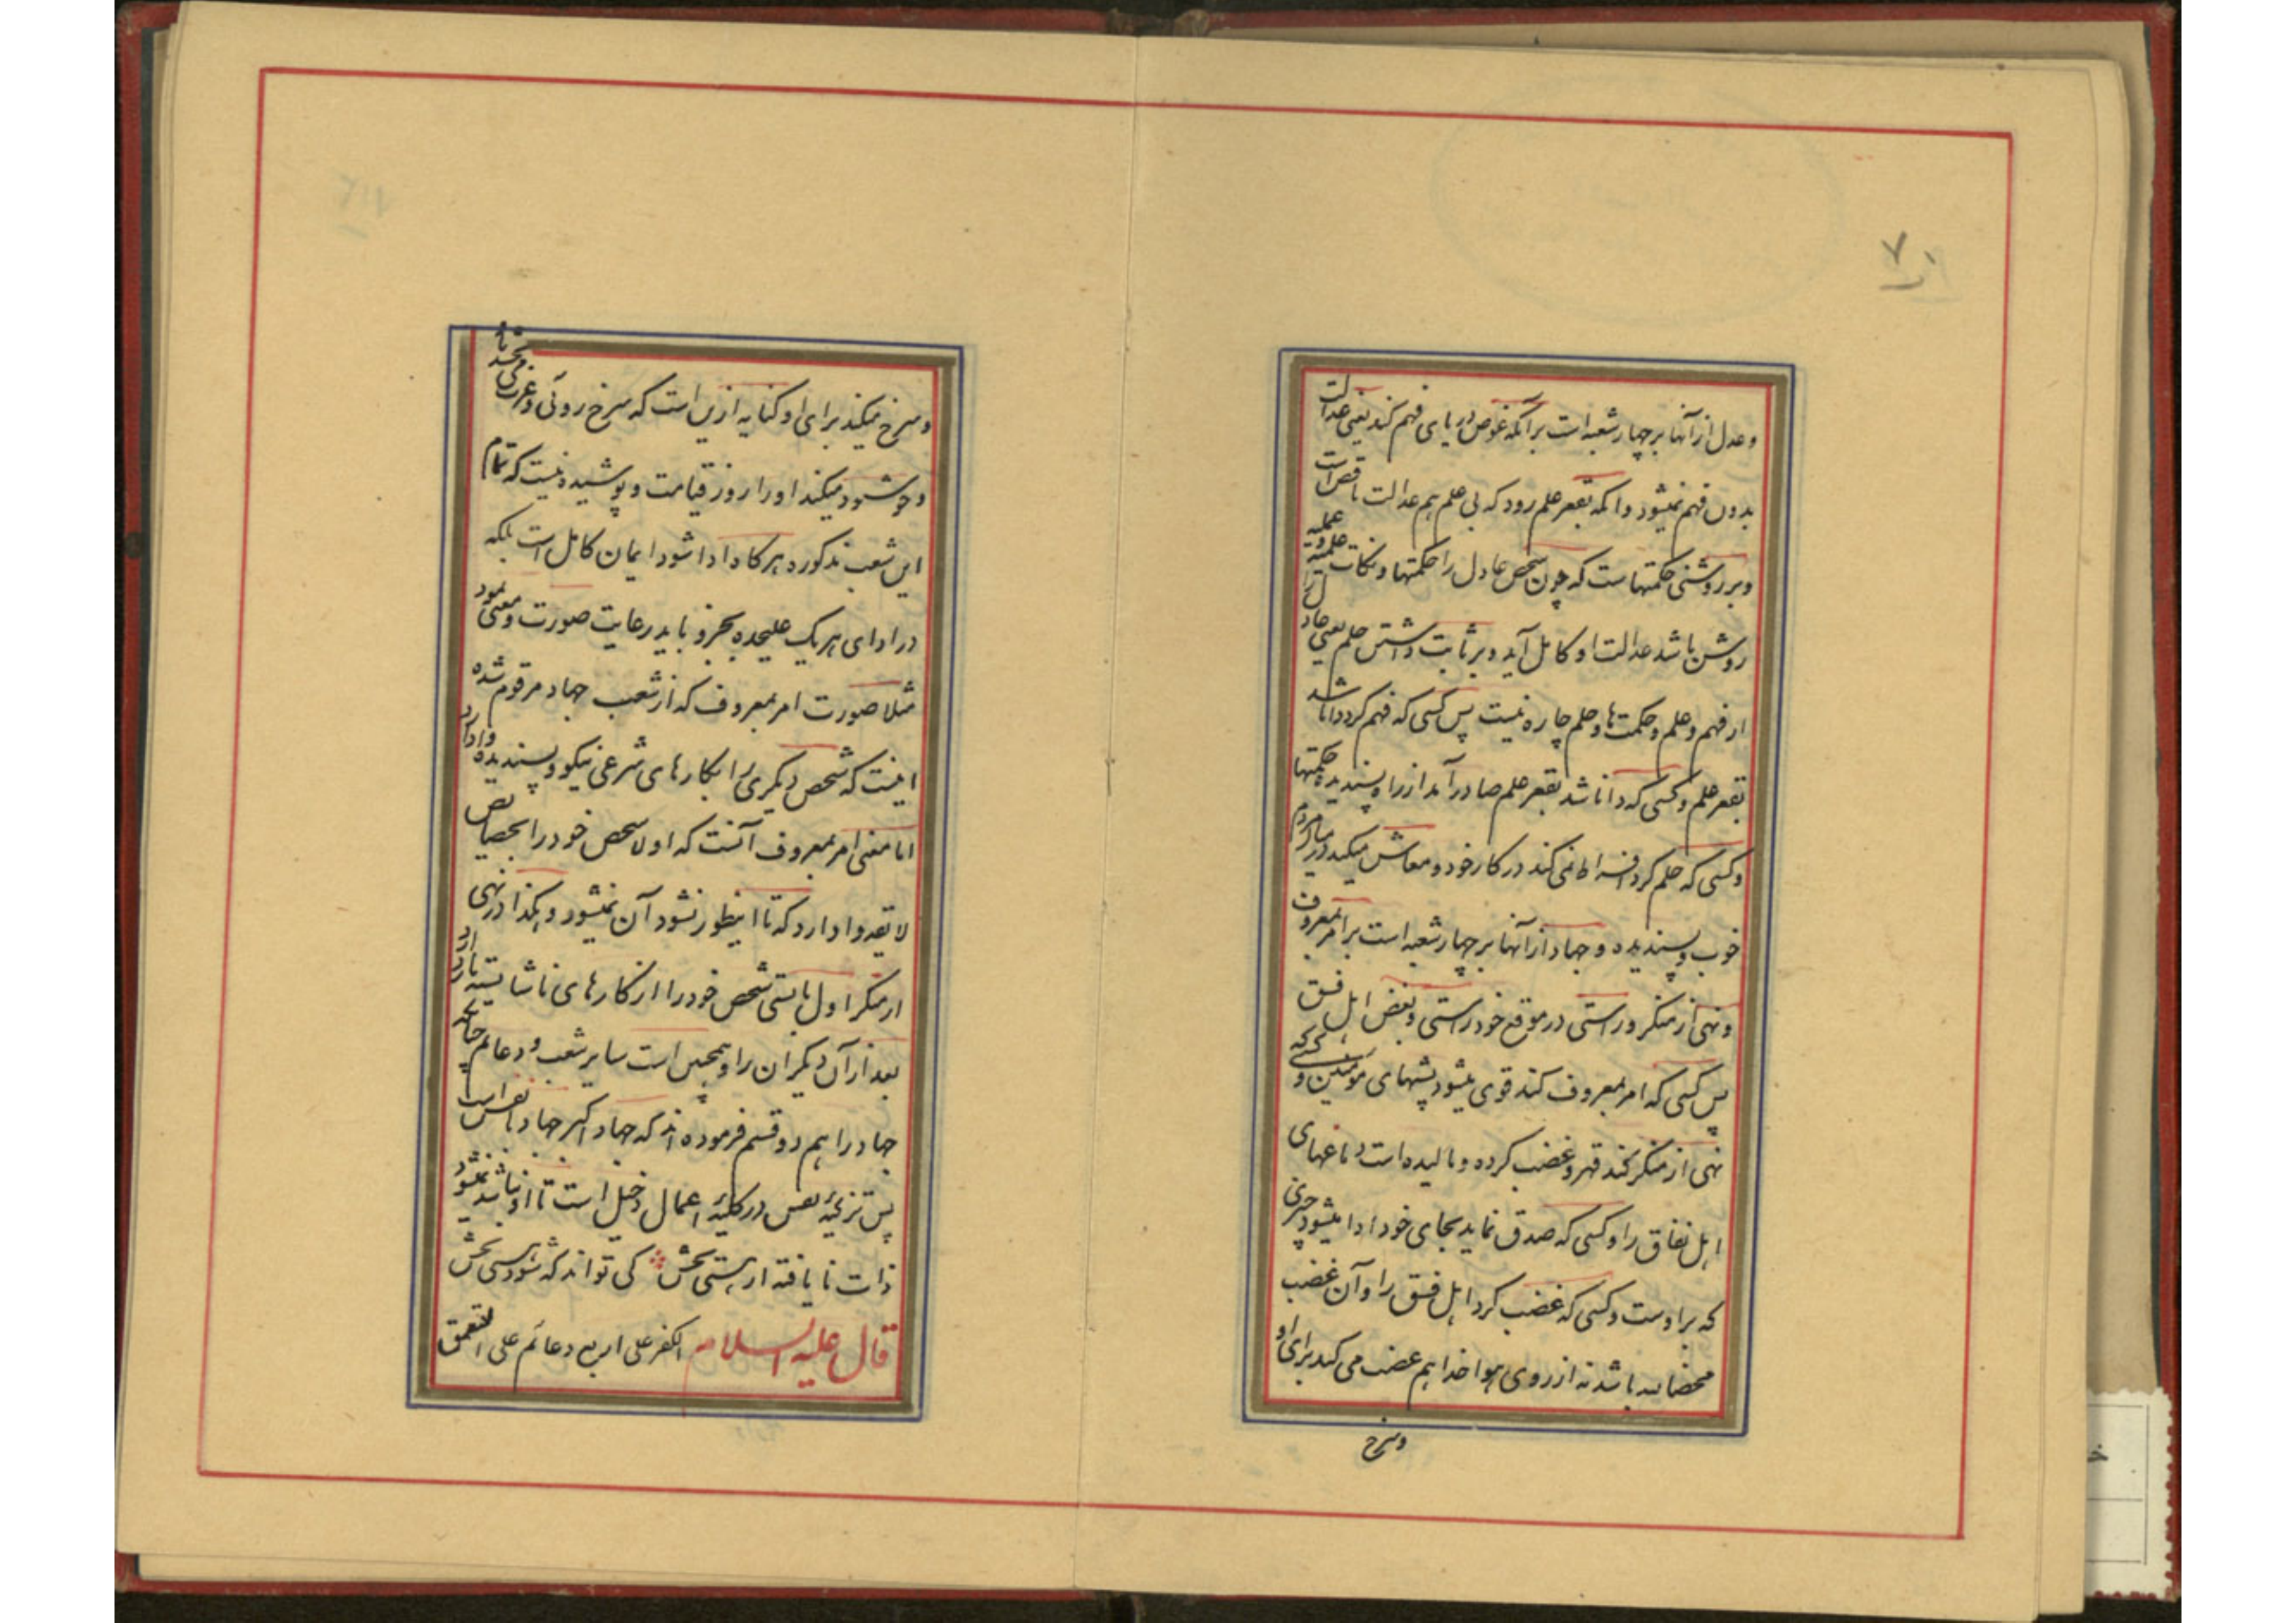 ۷۰
وعدل از آنها بر چهار شعبه است بر آنکه غوص در دریای فهم کند یعنی عدالت
بدون فهم نمیشود و آنکه بقعر علم رود که بی علم هم عدالت ناقص است
و بر روشنی حکمتهاست که چون شخص عادل را حکمتها و نکات علمیه و عملیه
روشن باشد عدالت او کامل آید و بر ثابت داشتن حلم یعنی عادل را
از فهم و علم و حکمت ها و حلم چاره نیست پس کسی که فهم کرد دانا شد
بقعر علم و کسی که دانا شد بقعر علم صادر آمد از راه پسندیده حکمتها
وکسی که حلم کرد افراط نمی کند در کار خود و معاش میکند در میان مردم
خوب و پسندیده و جهاد از آنها بر چهار شعبه است بر امر بمعروف
و نهی از منکر و راستی در موقع خود راستی و بغض اهل فسق
پس کسی که امر بمعروف کند قوی میشود پشتهای مؤمنین و کسی که
نهی از منکر کند قهر و غضب کرده و مالیده است دماغهای
اهل نفاق را و کسی که صدق نماید بجای خود ادا میشود چیزی
که بر اوست و کسی که غضب کرد اهل فسق را و آن غضب
محضا لله باشد نه از روی هوا خدا هم غضب می کند برای او
وسرخ
وسرخ میکند برای او کنایه ازین است که سرخ روئی و عزت می بخشد تا
و خوشنود میکند او را روز قیامت و پوشیده نیست که تمام
این شعب مذکوره هر کدام ادا شود ایمان کامل است بلکه
در ادای هر یک علیحده بجز و باید رعایت صورت و معنی نمود
مثلا صورت امر بمعروف که از شعب جهاد مرقوم شده
اینست که شخص دیگری را بکارهای شرعی نیکو و پسندیده وادارد
اما معنی امر بمعروف آنست که اولا شخص خود را بخصایص
لایقه وادارد که تا اینطور نشود آن نمیشود و هکذا در نهی
از منکر اول بایستی شخص خود را از کارهای ناشایسته باز دارد
بعد از آن دیگران را و همچنین است سایر شعب و دعائم چنانچه
جهاد را هم دو قسم فرموده اند که جهاد اکبر جهاد با نفس است
پس تزکیۀ نفس در کلیۀ اعمال دخیل است تا او نباشد نمیشود
ذات نا یافته از هستی بخش کی تواند که شود هستی بخش
قال علیه السلام الکفر علی اربع دعائم علی التعمق